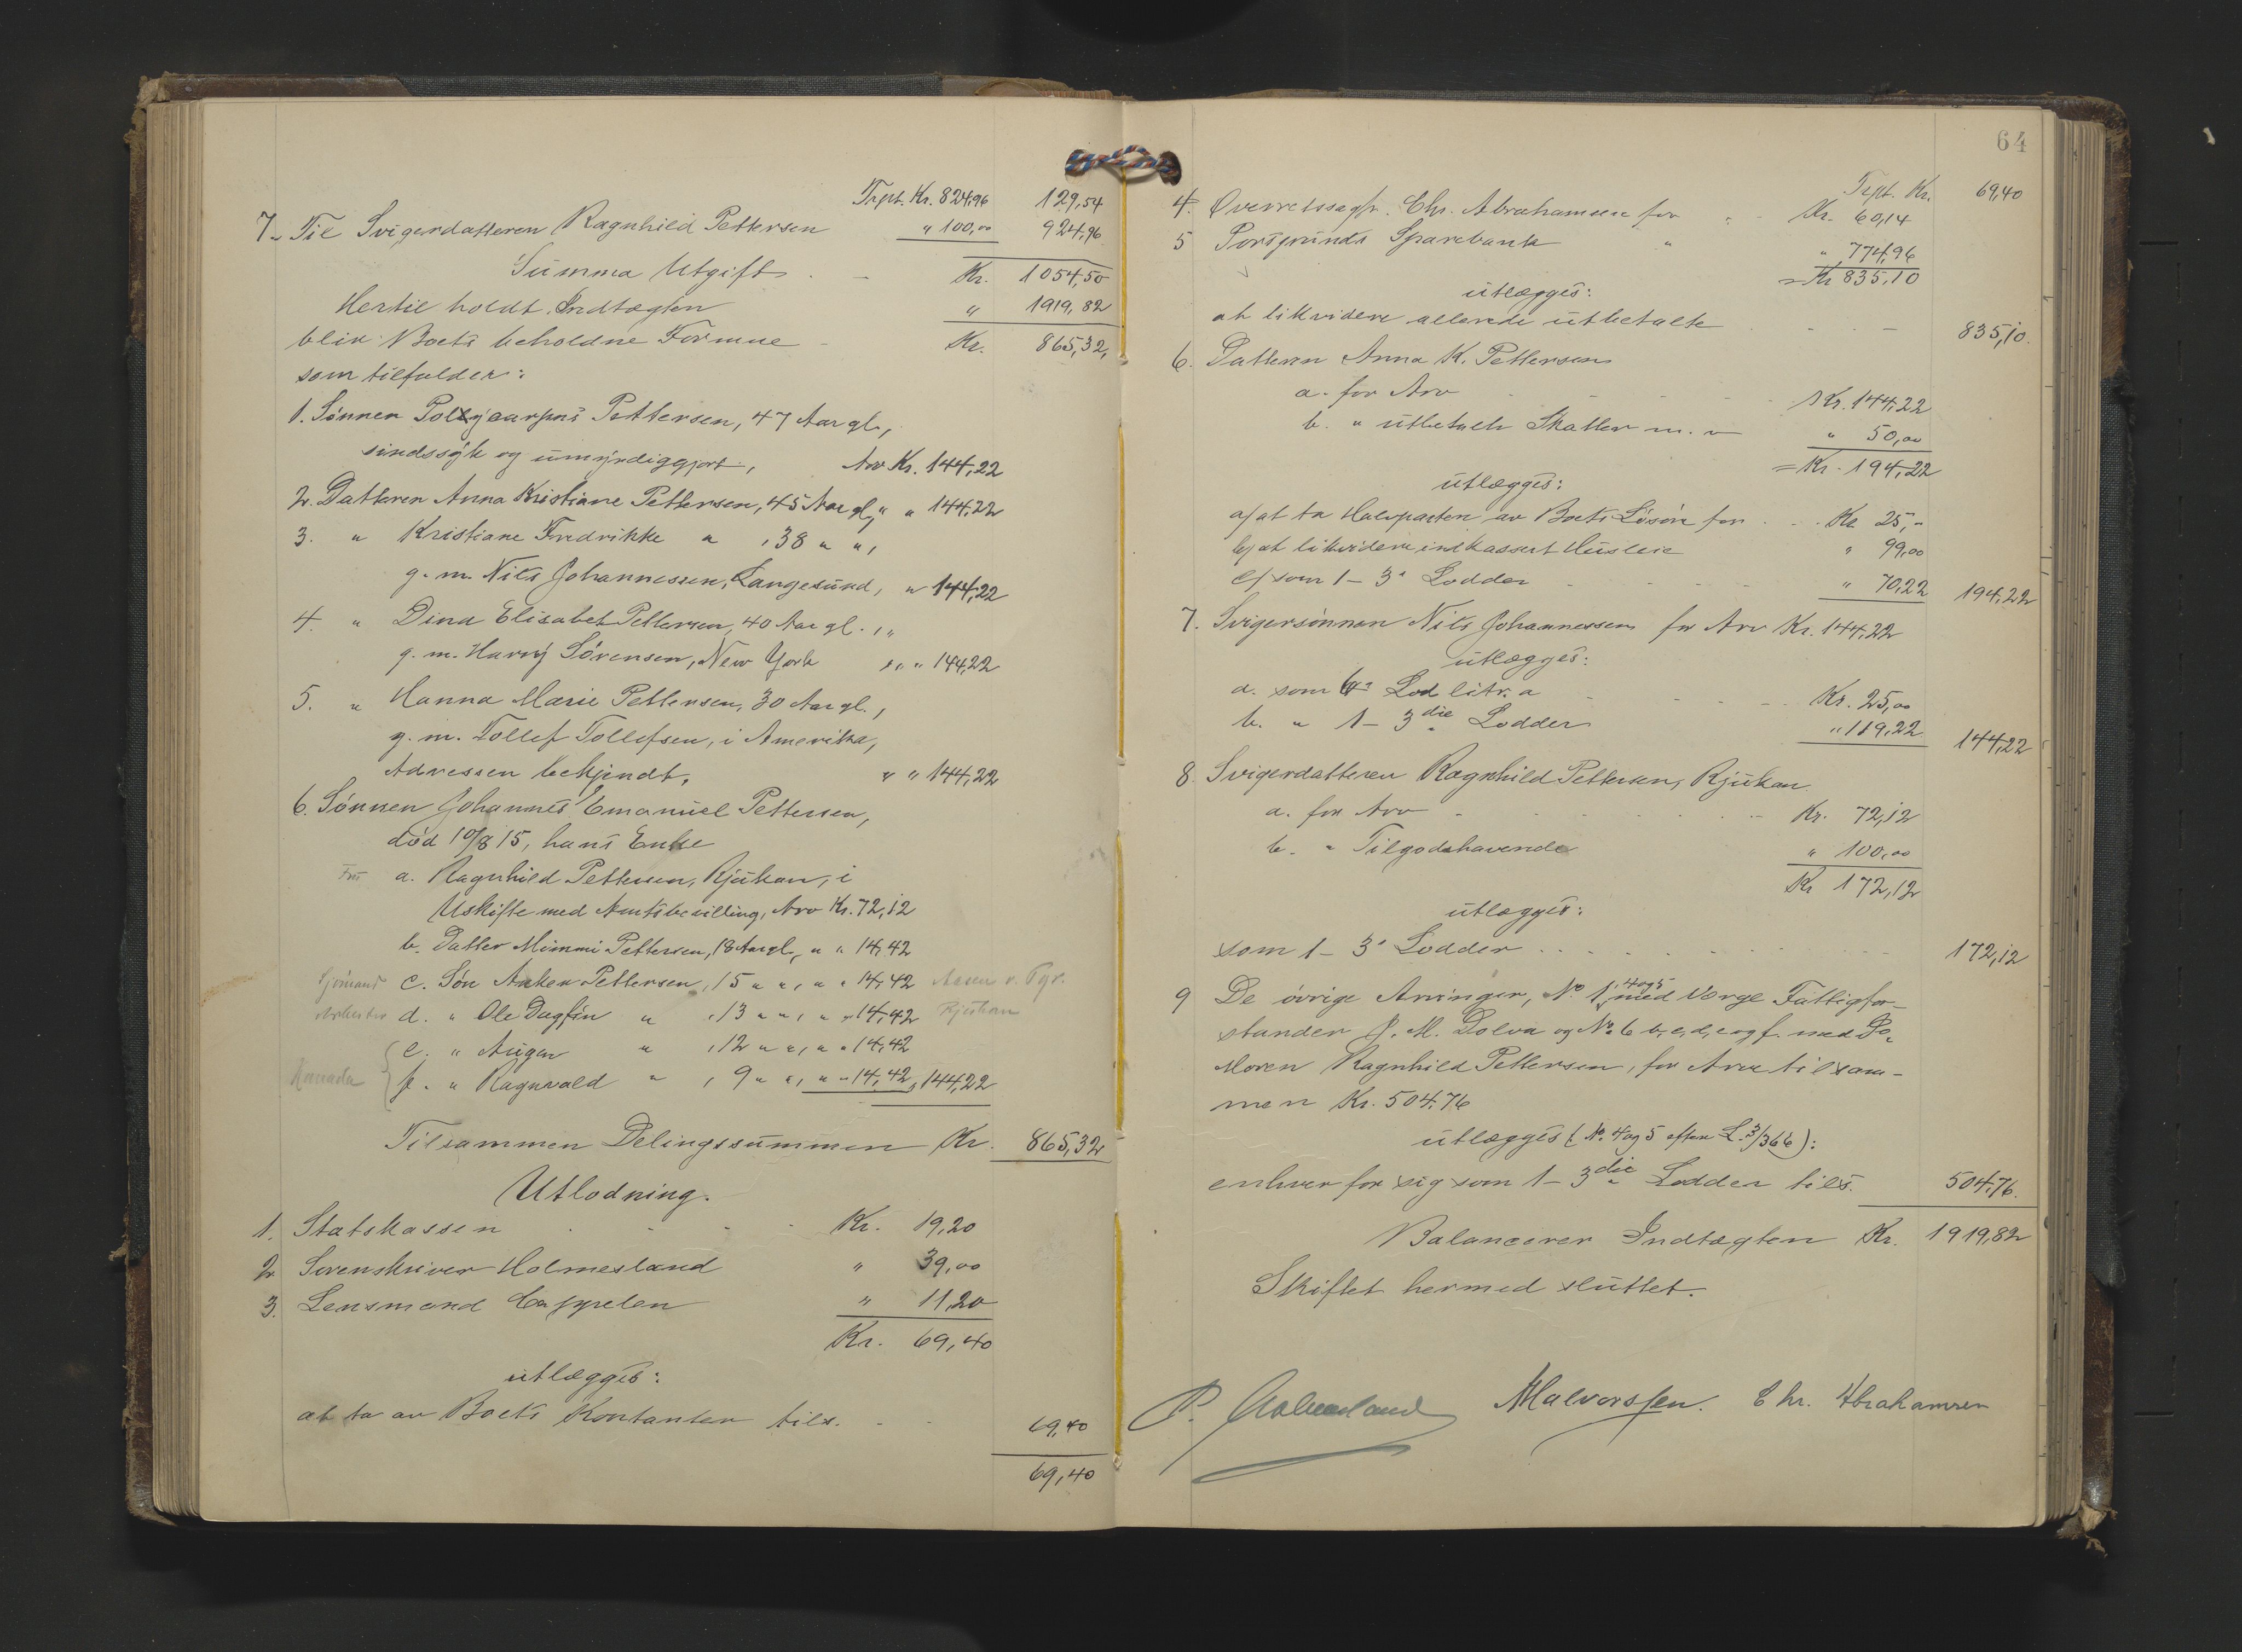 Trpt. Kr. 824,96 129,54
7. Til Svigerdatteren Ragnhild Pettersen " 100,00 924,96
Summa Utgift - Kr. 1054,50
Hertil holdt Indtægten " 1919,82
blir Boets beholdne Formue - Kr. 865,32,
som tilfalder:
1. Sønnen Pettersen, 47 Aar gl.,
sindssyk og umyndiggjort, Arv Kr. 144,22
2. Datteren Anna Kristiane Pettersen, 45 Aar gl., " " 144,22
3. " Kristiane Fredrikke " , 38 " ",
g. m. Nils Johannessen, Langesund, " 144,22
4. " Dina Elisabet Pettersen, 40 Aar gl. , "
g. m. Harry Sörensen, New York " , " 144,22
5. " Hanna Marie Pettersen, 30 Aar gl.,
g. m. Tollef Tollefsen, i Amerika,
Adressen bekjendt, " " 144,22
6. Sønnen Johannes Emanuel Pettersen,
död 10/8 15, hans Enke
Fru a. Ragnhild Pettersen, Rjukan, i
Uskifte med Amtsbevilling, Arv Kr. 72,12
b. Datter Mimmi Pettersen, 18 Aar gl., " " 14,42
Sjömand c. Sön Anker Pettersen, 15 " ", " " 14,42
d. " Ole Dagfin " , 13 " ", " " 14,42 Rjukan
e. " Augen " , 12 " ", " " 14,42
Kanada f. " Ragnvald " , 9 " ", " " 14,42, 144,22
Tilsammen Delingssummen Kr. 865,32
Utlodning.
1. Statskassen - - - Kr. 19,20
2 Sorenskriver Holmesland " 39,00
3. Lensmand Cappelen " 11,20
Kr. 69,40
utlægges:
at ta av Boets Kontanter tils. - - 69,40
69,40
64
Trpt. Kr. 69,40
4. Overretssagf. Chr. Abrahamsen for " - Kr. 60,14
5 Porsgrunds Sparebank " " 774,96
= Kr 835,10
utlægges:
at likvidere allerede utbetalte - - - 835,10.
6. Datteren Anna K. Pettersen
a. for Arv - - - - Kr. 144,22
b. " utbetalt Skatter m. v " 50,00
= Kr. 194,22
utlægges:
a/ at ta Halvparten av Boets Lösöre for - - Kr. 25,-
b/ at likvidere indkassert Husleie " 99,00
c/ som 1 - 3. Lodder - - - " 70,22 194,22
7. Svigersønnen Nils Johannessen for Arv Kr. 144,22
utlægges:
a. som 6. Lod litr. a - - - Kr. 25,00
b. " 1 - 3die Lodder " 119,22 144,22
8. Svigerdatteren Ragnhild Pettersen, Rjukan
a. for Arv - - - - Kr. 72,12
b. " Tilgodehavende " 100,00
Kr 172,12
utlægges:
som 1 - 3. Lodder - - - - 172,12
9 De övrige Arvinger, No. 1, 4 og 5 med Verge Fattigfor-
stander J. M. Dolva og No. 6 b, c, d, e og f. med
Moren Ragnhild Pettersen, for Arv tilsam-
men Kr. 504,76
utlægges (No. 4 og 5 efter L. 3/366):
enhver for sig som 1 - 3die Lodder tils. 504,76.
Balancerer Indtægten Kr. 1919,82
Skiftet hermed sluttet.
P. Holmesland Halvorssen. Chr. Abrahamsen